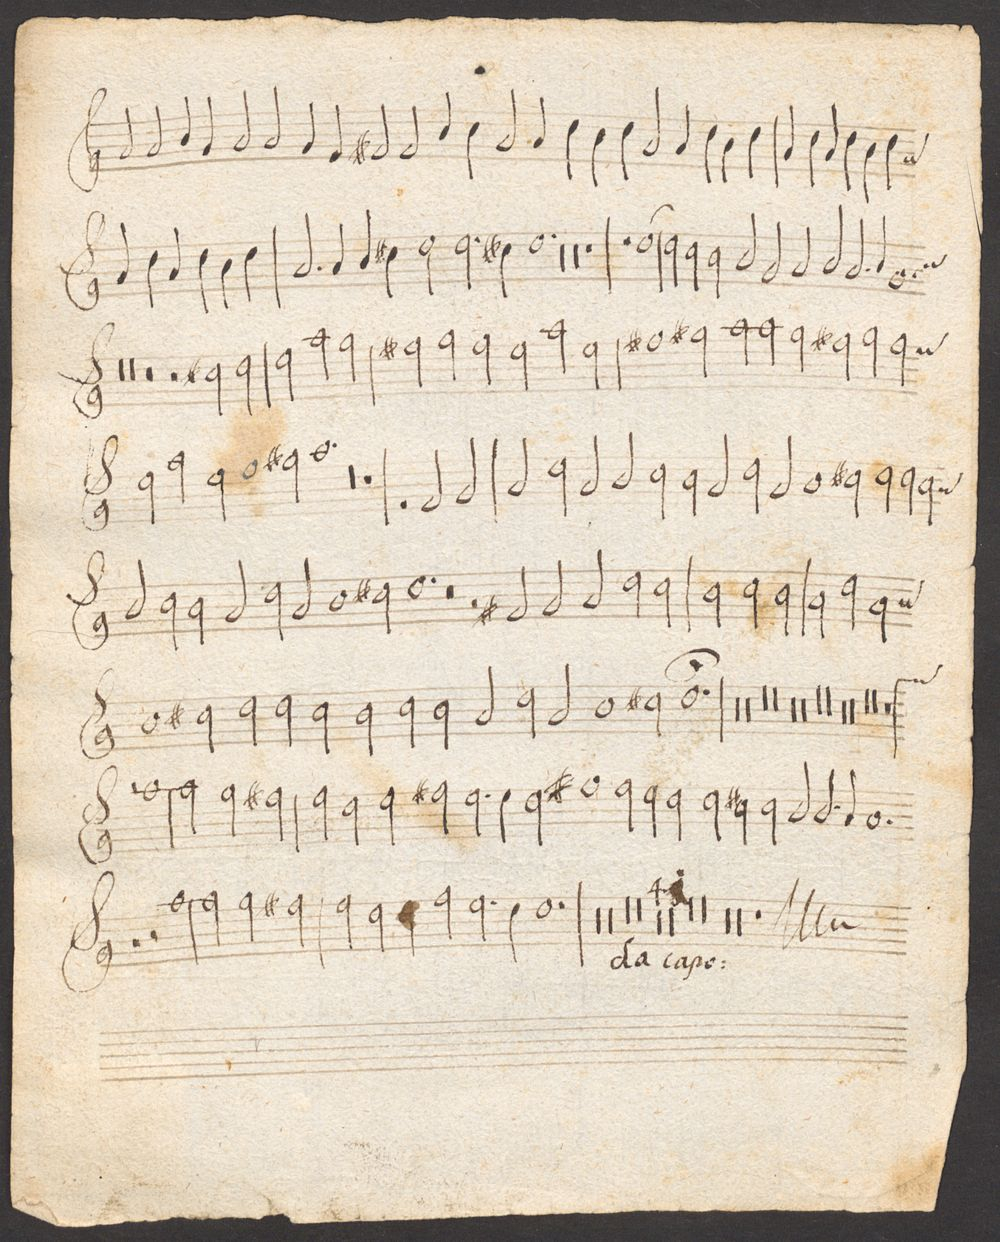 da capo: